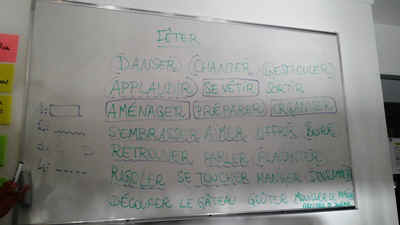 FÊTER
DANSER CHANTER GESTICULER
APPLAUDIR SE VÊTIR SORTIR
AMÉNAGER PRÉPARER ORGANISER
S'EMBRASSER AIMER OFFRIR BOIRE
RETROUVER PARLER PLAISANTER
RIGOLER SE TOUCHER MANGER
DÉCOUPER LE GÂTEAU GOÛTER